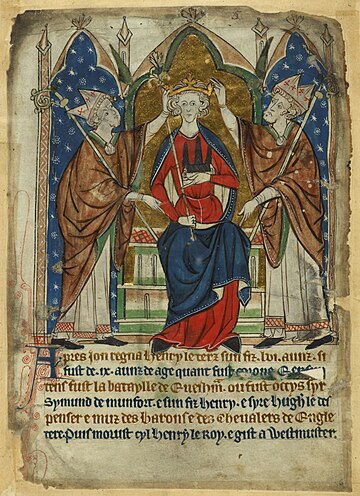 Apres Jon regna Henry le terz sun fiz .lvi. aunz. si
fust de .ix. aunz de age quant fust corone. E en
tens fust la bataylle de Evesham. ou fust occys syr
Symund de munfort. e sun fiz Henry. e syre Hugh le des
penser e muz des barons e des chevalers de Engle
tere. Puis morust cyl Henry le Roy. e gist a Westmuster.